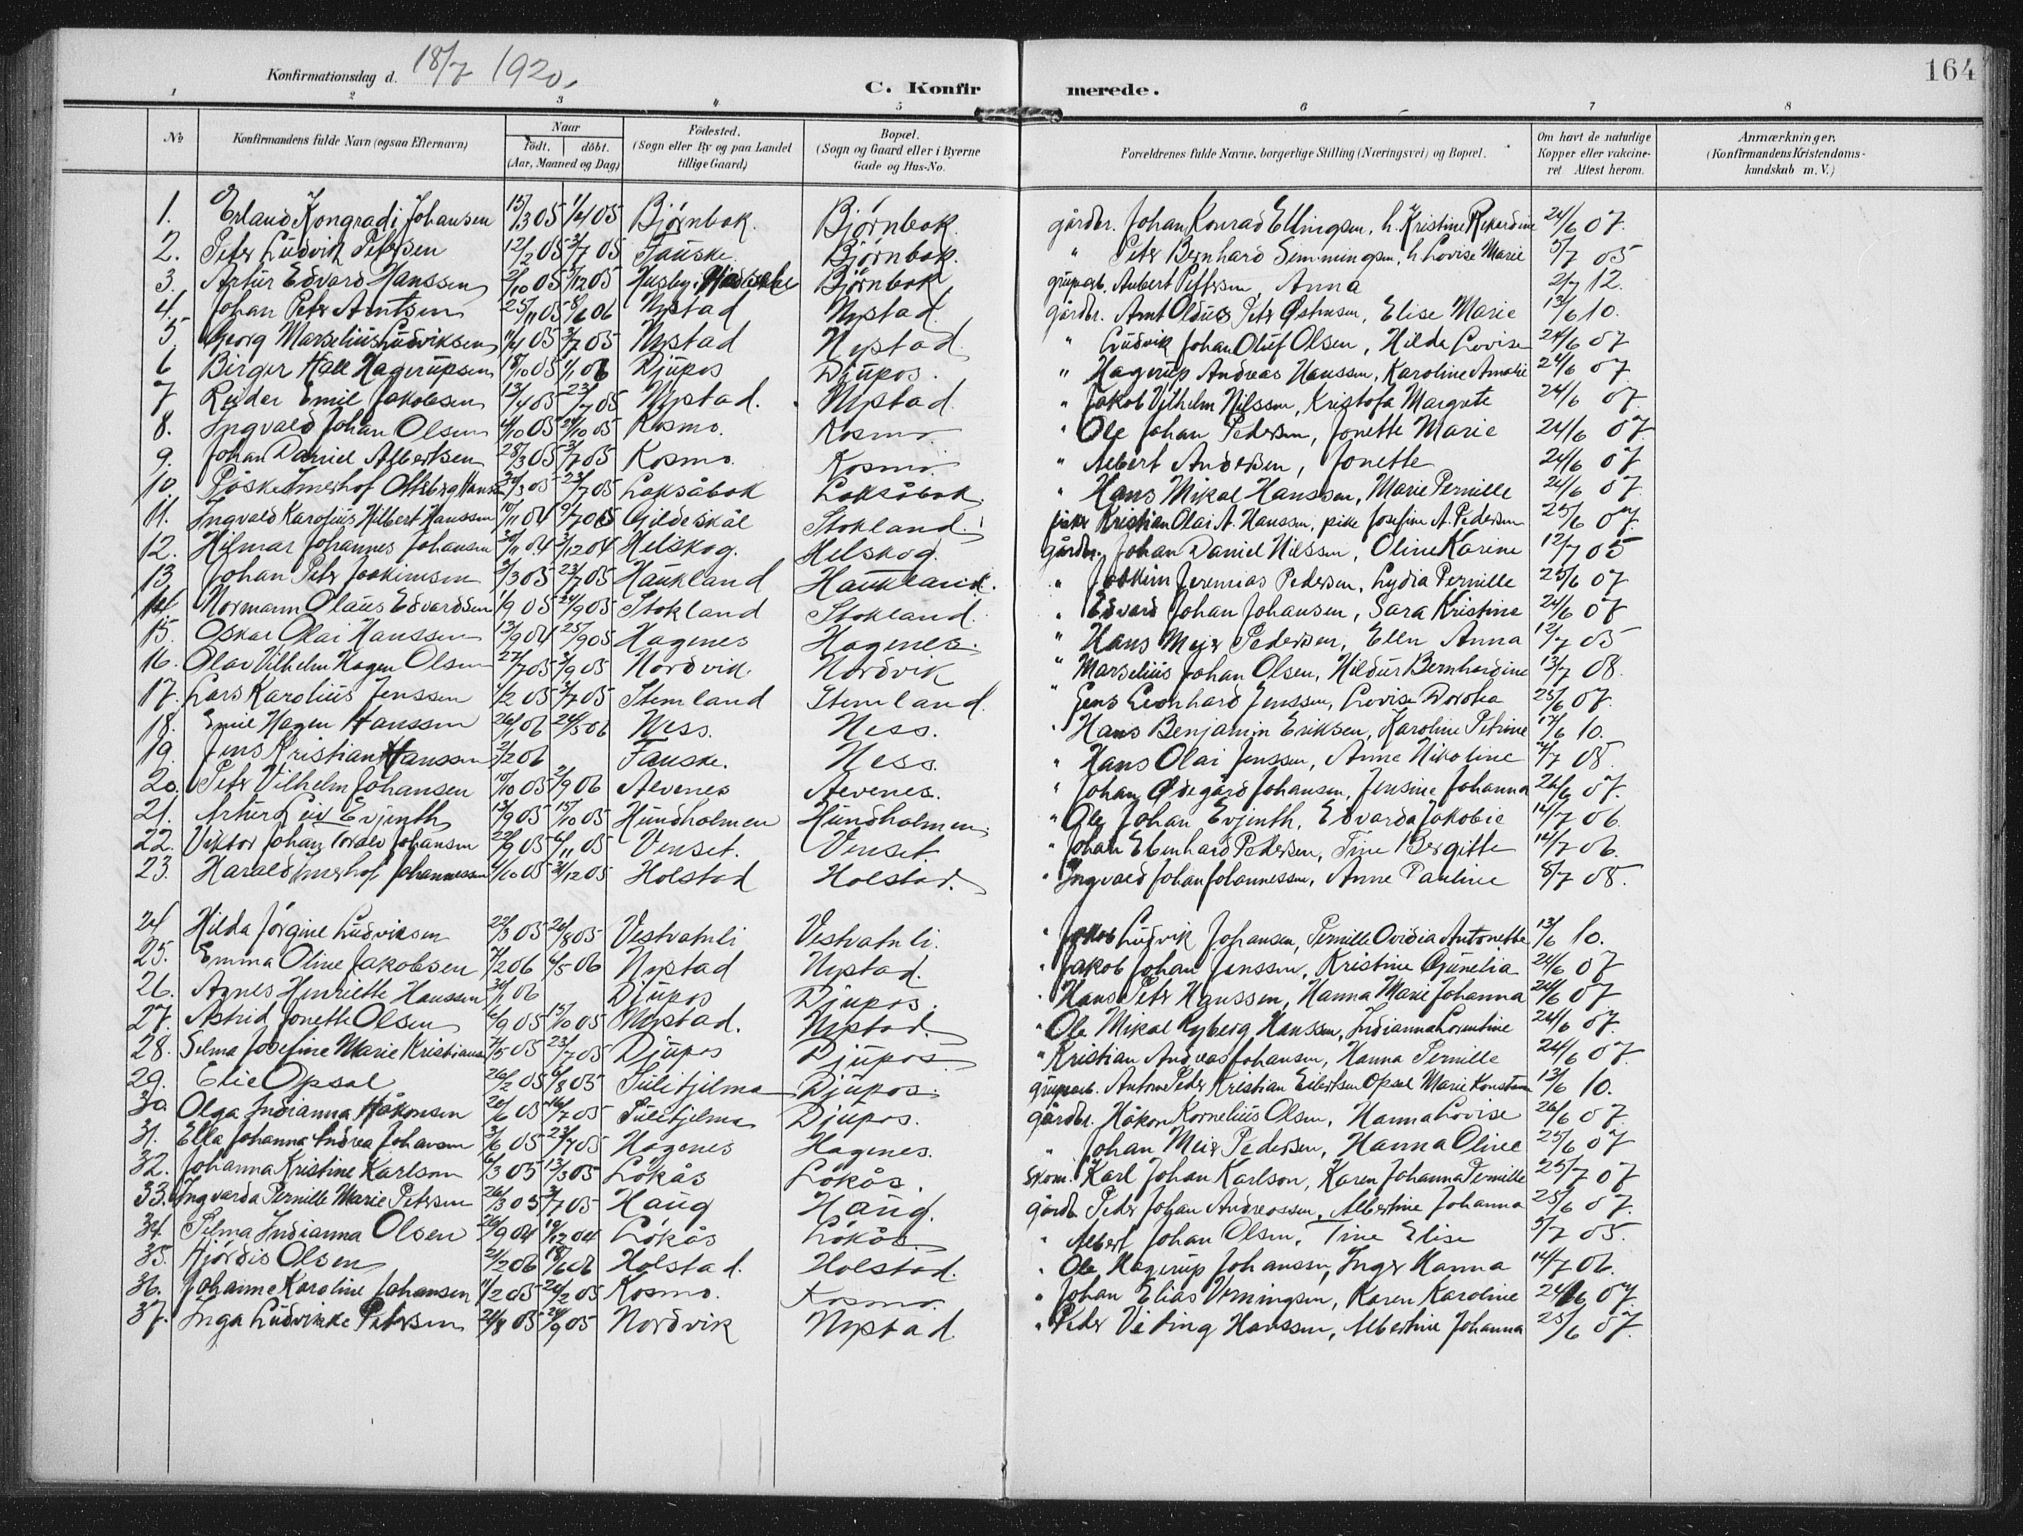 164
Konfirmationsdag d. 18/7 1920.
C. Konfirmerede.
1 2 3 4 5 6 7 8
No Konfirmandens fulde Navn (ogsaa Efternavn) Naar født. døbt. (Aar, Maaned og Dag) Fødested. (Sogn eller By og paa Landet tillige Gaard) Bopæl. (Sogn og Gaard eller i Byerne Gade og Hus-No. Forældrenes fulde Navne, borgerlige Stilling (Næringsvei) og Bopæl. Om havt de naturlige Kopper eller vakcineret. Attest herom. Anmærkninger. (Konfirmandens Kristendomskundskab m. V.)
1. Erland Kongradi Johansen 15/3 05 1/4 05 Bjørnbak. Bjørnbak. gårdbr. Johan Konrad Ellingsen, h. Kristine Rikardine 24/6 07.
2. Petr Ludvik Petersen 12/2 05 2/7 05 Fauske. Bjørnbak. " Petr Bernhard Simmingsen, h. Lovise Marie 5/7 05
3. Artur Edvard Hanssen 2/10 05 /12 05 Husby, Bjørnbak grubearb. Anna 2/7 12.
4. Johan Petr Arntsen 25/11 05 8/6 06 Nystad Nystad. gårdbr. Arnt Petr Østensen, Elise Marie 13/6 10.
5 Georg Marselius Ludviksen 11/4 05 2/7 05 Nystad Nystad. " Ludvik Johan Oluf Olsen, Hilda Lovise 24/6 07
6 Birger Hall Hagerupsen 18/10 05 1/1 06 Djupos Djupos. " Hagerup Andreas Hanssen, Karoline Amalie 24/6 07.
7 Reidar Emil Jakobsen 13/4 05 23/7 05 Nystad. Nystad. " Jakob Vilhelm Nilssen, Kristofa Margrete 24/6 07.
8. Ingvald Johan Olsen 4/10 05 29/10 05 Kosmo. Kosmo. " Ole Johan Pedersen, Jonette Marie 24/6 07.
9. Johan Daniel Albertsen 28/3 05 2/7 05 Kosmo. Kosmo. " Albert Andersen, Jonette 24/6 07.
10. Påske Imerhof Hanssen 30/3 05 23/7 05 Laksåbak Laksåbak. " Hans Mikal Hanssen, Marie Pernille 24/6 07.
11. Ingvald Karolius Hilbert Hanssen 19/11 04 9/7 05 Gildeskål Stokland. fisker Kristian Olai A. Hanssen, pike Josefine A. Pedersen 25/6 07.
12. Hilmar Johannes Johansen 30/11 04 3/12 04 Helskog. Helskog. gårdbr. Johan Daniel Nilssen, Oline Karine 12/7 05
13. Johan Petr Joakimsen 2/3 05 23/7 05 Haukland Haukland. " Joakim Jeremias Pedersen, Lydia Pernille 25/6 07
14. Normann Olaus Edvardsen 1/9 05 24/9 05 Stokland Stokland. " Edvard Johan Johansen, Sara Kristine 24/6 07
15. Oskar Olai Hanssen 13/9 04 25/9 05 Hagenes Hagenes. " Hans Meyer Pedersen, Ellen Anna 12/7 05
16. Olav Vilhelm Hagen Olsen 27/7 05 3/9 05 Nordvik. Nordvik " Marselius Johan Olsen, Hildur Bernhardine 13/7 08.
17. Lars Karolius Jenssen 1/2 05 2/7 05 Stemland Stemland. " Jens Leonhard Jenssen, Lovise Dorotea 25/6 07.
18. Emil Hagen Hanssen 26/1 06 24/5 06 Ness. Ness. " Hans Benjamin Eriksen, Karoline Petrine 17/6 10.
19. Jens Kristian Hanssen 2/2 06 Fauske. Ness. " Hans Olai Jenssen, Anne Nikoline 7/7 08.
20. Petr Vilhelm Johansen 19/10 05 2/9 06 Alvenes Alvenes. " Johan Ødegård Johansen, Jensine Johanna 26/6 07.
21. Artur Leiv Evjenth 13/9 05 15/10 05 Hundholmen Hundholmen. " Ole Johan Evjenth, Edvarda Jakobie 14/7 06.
22. Viktor Johan Torald Johansen 22/9 05 6/11 05 Venset. Venset. " Johan Edenhard Pedersen, Tine Bergitte 14/7 06.
23. Harald Imerhof Johannessen 4/10 05 31/12 05 Holstad Holstad. " Ingvald Johan Johannessen, Anne Pauline 8/7 08.
24 Hilda Jørgine Ludviksen 22/3 05 20/8 05 Vestvatnli Vestvatnli. " Jakob Ludvik Johansen, Pernille Ovidia Antonette 13/6 10.
25. Emma Oline Jakobsen 7/2 06 4/5 06 Nystad Nystad. " Jakob Johan Jenssen, Kristine Gunelia 24/6 07
26. Agnes Henriette Hanssen 30/1 06 Djupos Djupos. " Hans Petr Hanssen, Hanna Marie Johanna 24/6 07
27. Astrid Jonette Olsen 6/9 05 15/10 05 Nystad. Nystad. " Ole Mikal Ryberg Hanssen, Indianna Lorentine 24/6 07.
28. Selma Josefine Marie Kristiansen 7/5 05 23/7 05 Djupos Djupos. " Kristian Andreas Johansen, Hanna Pernille 24/6 07.
29. Elie Opsal 26/2 05 6/8 05 Sulitjelma Djupos. grubearb. Anton Peder Kristian Eilertsen Opsal Marie Konstanse 13/6 10.
30. Olga Indianna Håkonsen 20/6 05 16/7 05 Sulitjelma Djupos. gårdbr. Håkon Kornelius Olsen, Hanna Lovise 26/6 07.
31. Ella Johanna Andrea Johansen 3/6 05 23/7 05 Hagenes Hagenes. " Johan Meier Pedersen, Hanna Oline 25/6 07
32. Johanna Kristine Karlson 6/3 05 13/3 05 Løkås Løkås. skom. Karl Johan Karlson, Karen Johanna Pernille 25/7 07
33. Ingvarda Pernille Marie Petersen 26/3 05 2/7 05 Haug Haug. gårdbr. Peder Johan Andreassen, Albertine Johanna 25/6 07.
34. Selma Indianna Olsen 26/9 04 19/12 04 Løkås Løkås. " Albert Johan Olsen, Tine Elise 5/7 05.
35. Hjørdis Olsen 21/2 06 18/6 06 Holstad. Holstad. " Ole Hagerup Johanssen, Inger Hanna 14/7 06.
36. Johanne Karoline Johansen 11/2 05 20/2 05 Kosmo. Kosmo. " Johan Elias Verningsen, Karen Karoline 24/6 07
37. Inga Ludvikke Petersen 24/8 05 24/9 05 Nordvik Nystad. " Peder Veding Hanssen, Albertine Johanna 25/6 07.